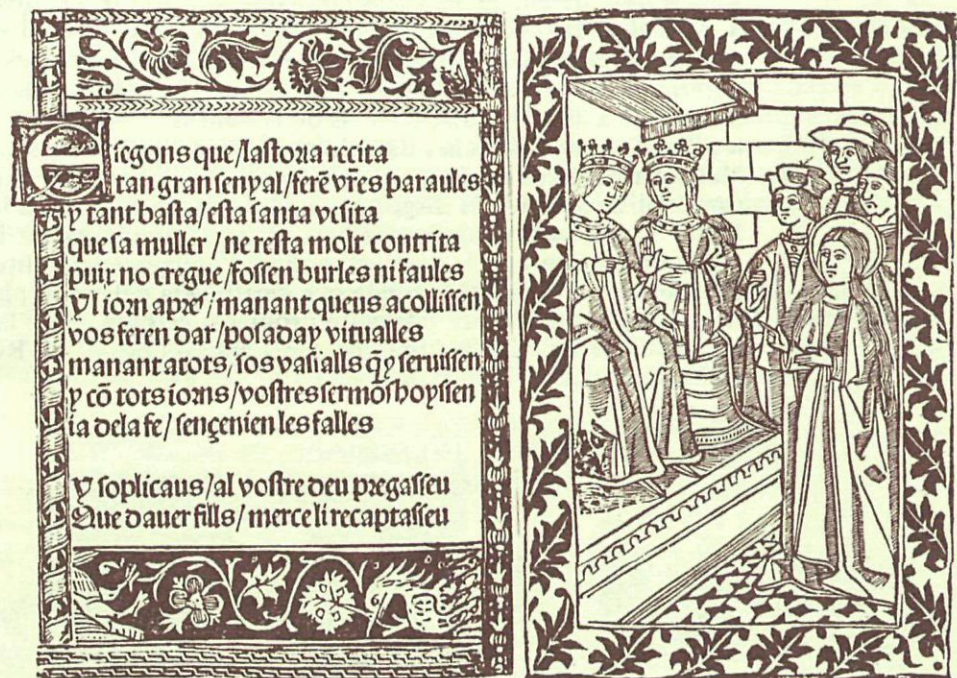 E segons que/lastoria recita
tan gran senyal/ferē vr̄es paraules
y tant basta/esta santa vesita
que sa muller/ne resta molt contrita
puix no cregue/fossen burles ni faules
Y l iorn apres/manant queus acollissen
vos feren dar/posada y vitualles
manant atots/sos vassalls q̄ y seruissen
y cō tots iorns/vostres sermōs hoyssen
ia dela fe/sençenien les falles
y soplicaus/al vostre deu pregasseu
Que dauer fills/merce li recaptasseu